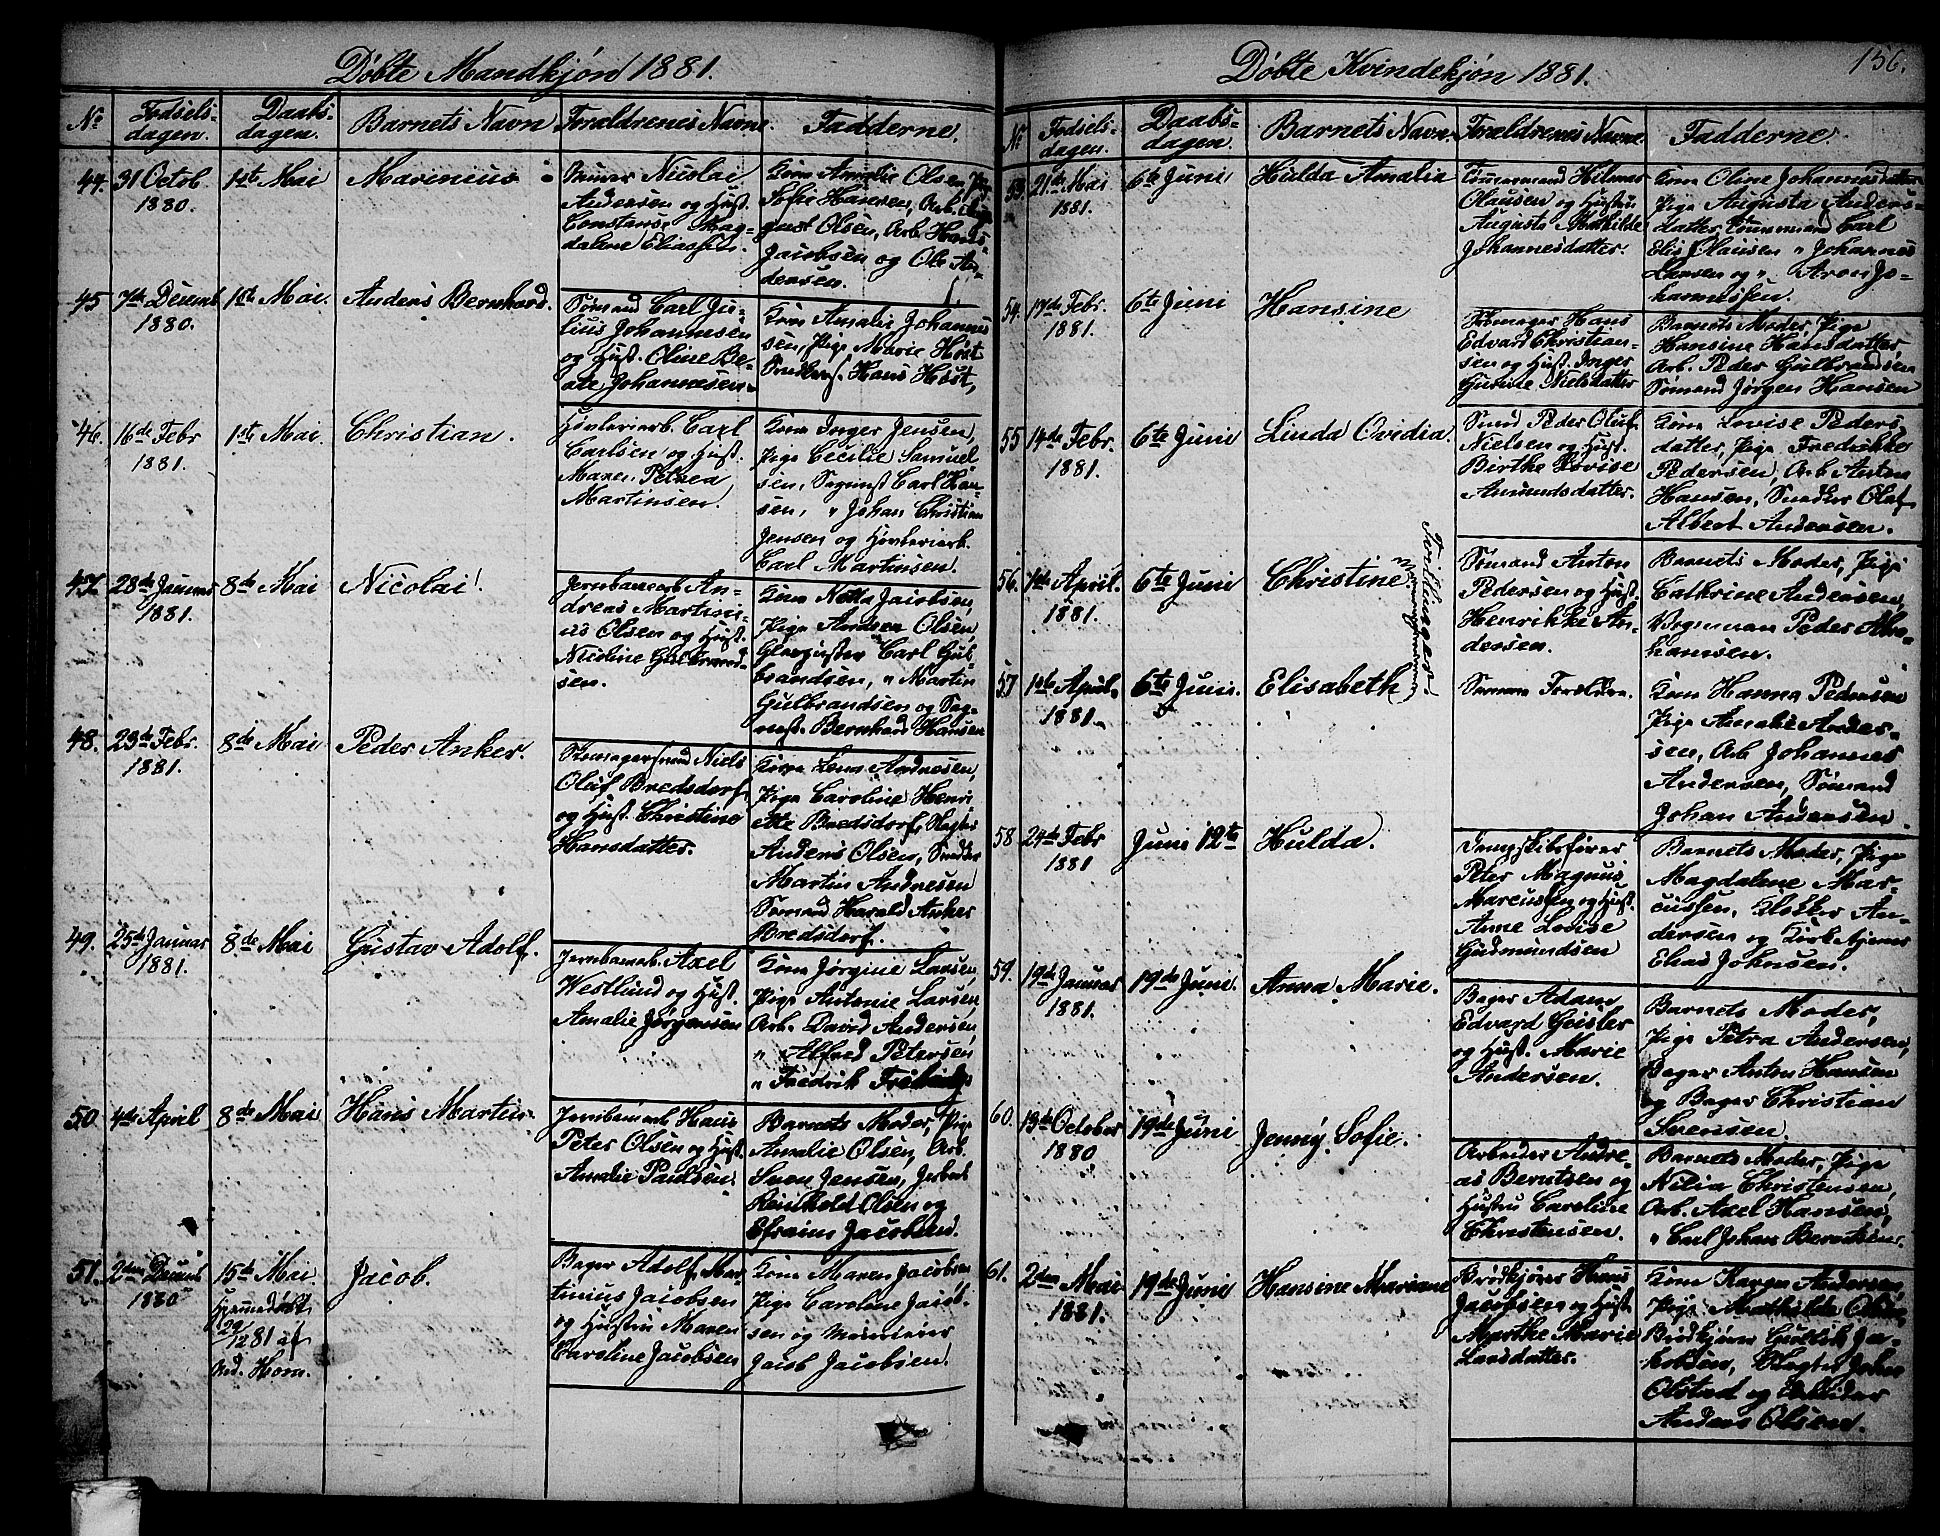 Døbte Mandkjøn 1881.
No
Fødsels-
dagen.
Daabs-
dagen.
Barnets Navn
Forældrenes Navne.
Fadderne.
44.
31 Octob
1880.
1ste Mai
Marinius
Nicolai
Andersen og Hust.
Constanse Mag-
dalene Eliassen.
Kone Amalie Olsen, Pige
Sofie Hansen, Arb. Au-
gust Olsen, Arb. Hans
Jacobsen og Ole An-
dersen.
45
7de Decemb.
1880.
1ste Mai.
Anders Bernhard.
Sømand Carl Ju-
lius Johannesen
og Hust. Oline Be-
ate Johannesen.
Kone Amalie Johannes
sen, Pige Marie Høst
Hans Høst,
46.
16de Febr
1881.
1ste Mai.
Christian.
Carl
Carlsen og Hust.
Maren Petrea
Martinsen.
Kone Inger Jensen,
Pige Cecilie Samuel
sen, Carl Han-
sen, " Johan Christian
Jensen og
Carl Martinsen.
47.
28de Januar
1881.
8de Mai
Nicolai!
Jernbanearb. An-
dreas Martini-
us Olsen og Hust.
Nicoline Gulbrand-
sen.
Kone Netta Jacobsen,
Pige Andrea Olsen,
Carl Gul-
brandsen, " Martin
Gulbrandsen og Sag-
mest. Bernhard Hansen
48.
23de Febr.
1881.
8de Mai
Peder Anker.
Niels
Oluf Bredsdorf
og Hust. Christine
Hansdatter.
Kone Lena Andresen,
Pige Caroline Henri-
ette Bredsdorf,
Anders Olsen, Snedker
Martin Andresen
Sømand Harald Anker
Bredsdorf.
49.
25de Januar
1881.
8de Mai
Gustav Adolf.
Jernbanearb. Axel
Westlund og Hust.
Amalie Jørgensen
Kone Jørgine Larsen,
Pige Antonie Larsen,
Arb. David Andersen
" Alfred Petersen
" Fredrik
50.
4de April
8de Mai
Hans Martin.
Jernbanearb. Hans
Peter Olsen og Hust.
Amalie Paulsen.
Barnets Moder, Pige
Amalie Olsen, Arb.
Sven Jensen,
Reinholdt Olsen og
Efraim Jacobsen.
51.
2den Decemb
1880
15de Mai.
Hjemmedøbt
29/12 81 af
And. Horn.
Jacob.
Bager Adolf Mar
tinius Jacobsen
og Hustru Maren
Caroline Jacobsen
Kone Maren Jacobsen
Pige Caroline Jacob-
sen og
Jacob Jacobsen.
Døbte Kvindekjøn 1881.
156.
No
Fødsels-
dagen.
Daabs-
dagen.
Barnets Navn.
Forældrenes Navne.
Fadderne.
53.
21de Mai
1881.
6te Juni
Hulda Amalia
Tømmermand Hilmar
Olausen og Hustru
Augusta Mathilde
Johannesdatter.
Kone Oline Johannesdatter
Pige Augusta Anders-
datter Tømmermand Carl
Elis Olausen " Johannes
Larsen og " Aron Jo-
hannessen.
54.
17de Febr.
1881.
6te Juni
Hansine
Hans
Edvard Christian-
sen og Hust. Inger
Gurine Nielsdatter
Barnets Moder, Pige
Hansine Hansdatter,
Arb. Peder Gulbrandsen
Sømand Jørgen Hansen
55
14de Febr.
1881.
6te Juni
Linda Ovidia.
Smed Peder Oluf
Nielsen og Hust.
Birthe Lovise
Amundsdatter.
Kone Lovise Peders
datter, Pige Fredrikke
Pedersen, Arb. Anton
Hansen, Snedker Olaf
Albert Andersen.
56.
1ste April.
1881.
6te Juni
Christine
Tvillinger
Sømand Anton
Pedersen og Hust.
Henrikke An-
dersen.
Barnets Moder, Pige
Cathrine Andersen,
Vognman Peder
hansen.
57
1ste April.
1881.
6te Juni.
Elisabeth
Samme Forældre.
Kone Hanna Pedersen
Pige Amalie Ander-
sen, Arb Johannes
Andersen, Sømand
Johan Andersen.
58
24de Febr
1881
Juni 12te
Hulda.
Dampskibsfører
Peter Magnus
Marcussen og Hust.
Anne Lovise
Gudmundsen
Barnets Moder, Pige
Magdalene Mar-
cussen, Klokker An-
dersen og Kirketjener
Elias Johnsen.
59.
19de Januar
1881.
19de Juni.
Anna Marie.
Bager Adam
Edvard Geisler
og Hust. Marie
Andersen.
Barnets Moder,
Pige Petra Andersen,
Bager Anton Hansen
og Bager Christian
Svensen.
60.
13de October
1880
19de Juni
Jenny Sofie.
Arbeider Andre-
as Berntsen og
Hustru Caroline
Christensen.
Barnets Moder, Pige
Nilia Christensen,
Arb. Axel Hansen,
" Carl Johan Berntsen.
61.
2den Mai
1881.
19de Juni
Hansine Mariane
Brødkjører Hans
Jacobsen og Hust.
Marthe Marie
Larsdatter.
Kone Karen Andersen,
Pige Mathilde
Brødkjører Gullik Ja-
kobsen, Slagter John
Olstad og
Anders Olsen.